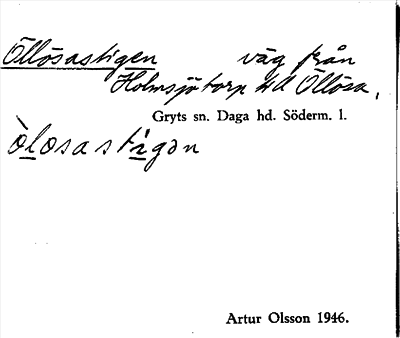 Öllösastigen väg från
Holmsjötorp till Öllösa,
Gryts sn. Daga hd. Söderm. l.
òlωsastigən
Artur Olsson 1946.